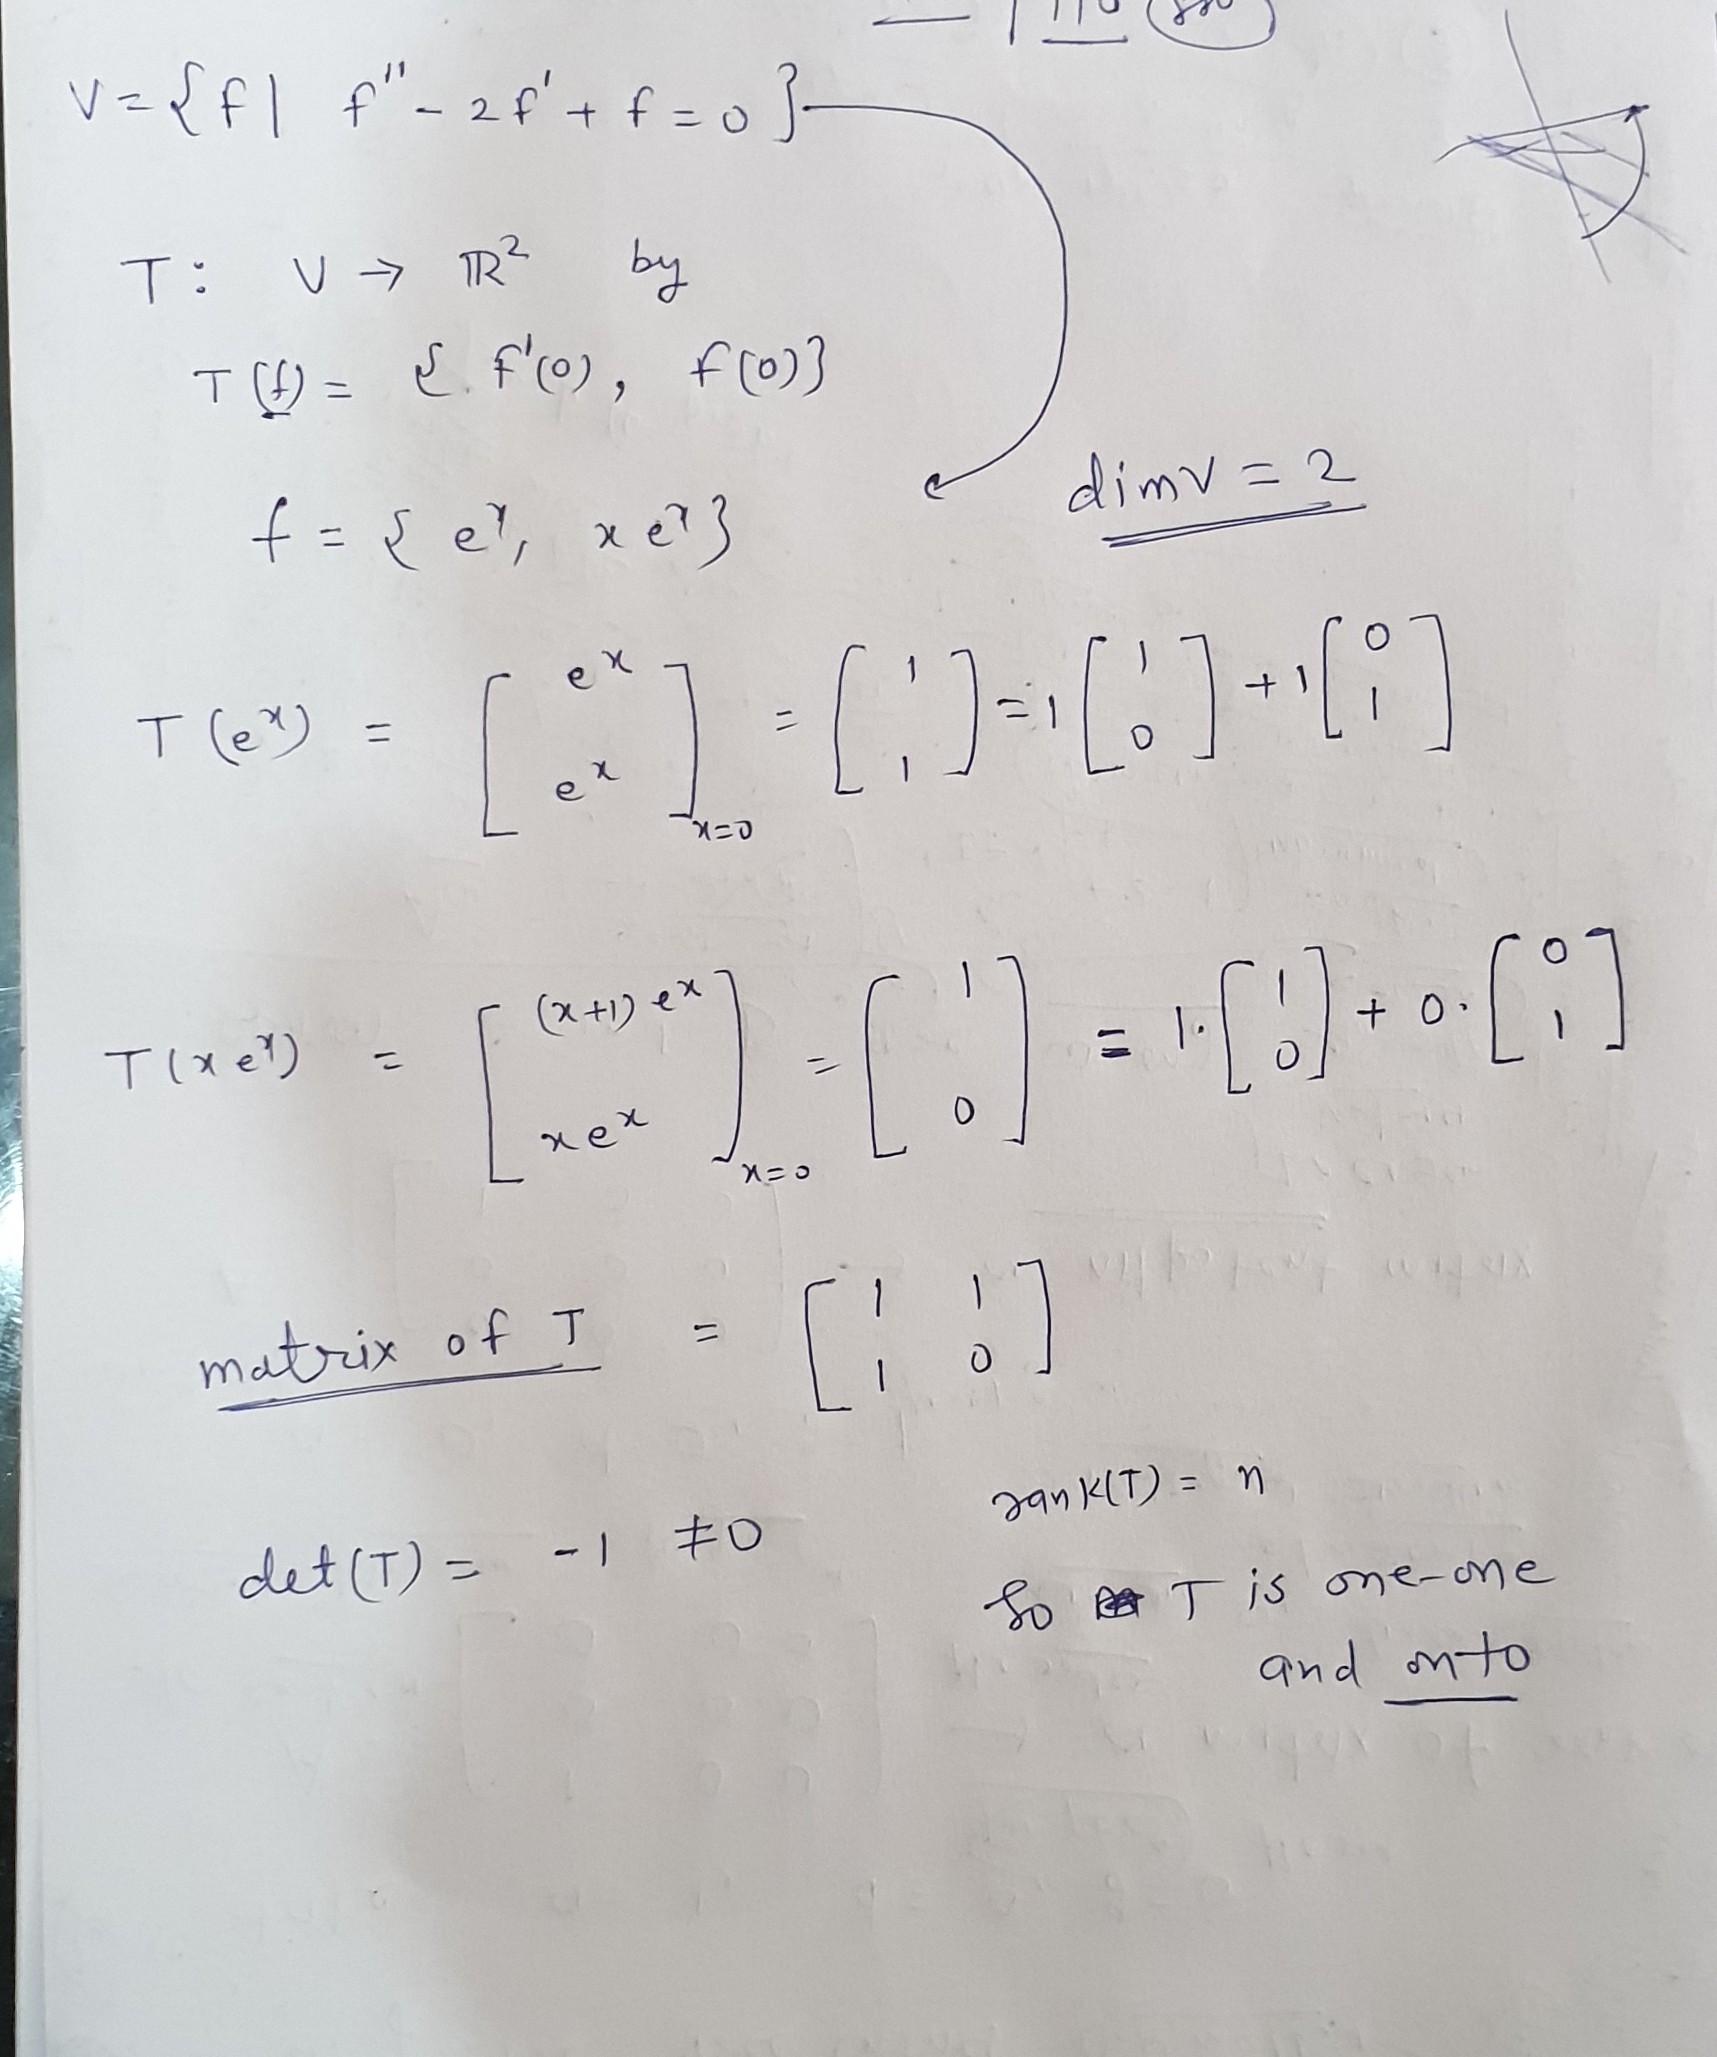 V = { f | f'' - 2f' + f = 0 }
T : V → ℝ² by
T(f) = { f'(0), f(0) }
dim V = 2
f = { eˣ, x eˣ }
T(eˣ) = [ eˣ ; eˣ ]ₓ₌₀ = [ 1 ; 1 ] = 1 [ 1 ; 0 ] + 1 [ 0 ; 1 ]
T(x eˣ) = [ (x+1) eˣ ; x eˣ ]ₓ₌₀ = [ 1 ; 0 ] = 1. [ 1 ; 0 ] + 0. [ 0 ; 1 ]
matrix of T = [ 1 1 ; 1 0 ]
rank(T) = n
det(T) = -1 ≠ 0
So T is one-one
and onto